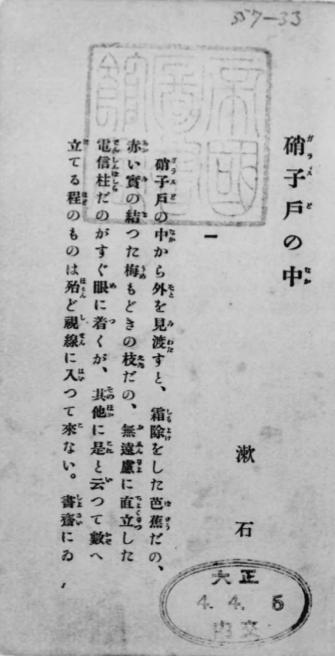 557-33
硝子戸の中
漱石
一
硝子戸の中から外を見渡すと、霜除をした芭蕉だの、
赤い實の結つた梅もどきの枝だの、無遠慮に直立した
電信柱だのがすぐ眼に着くが、其他に是と云つて數へ
立てる程のものは殆ど視線に入つて來ない。書齋にゐ
帝國圖書館藏
大正
4. 4. 5
内交